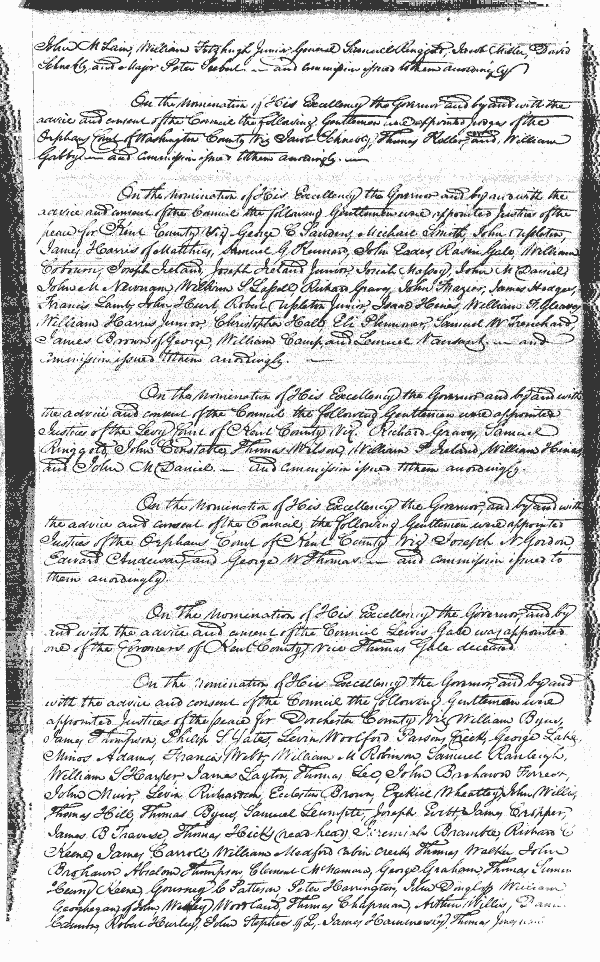 John McLain, William Fitzhugh Junior General Samuel Ringgold, Jacob Miller, David
Schnebly and Major Peter Seibert — and commission issued to them accordingly
On the nomination of His Excellency the Governor and by and with the
advice and consent of the Council the following Gentlemen were appointed Judges of the
Orphans Court of Washington County Viz Jacob Schnebly, Thomas Keller, and William
Gabby — and commission issued to them accordingly. —
On the nomination of His Excellency the Governor and by and with the
advice and consent of the Council the following Gentlemen were appointed Justices of the
peace for Kent County Viz George C. Sanders, Michael Smith, John Tipleton,
James Harris of Matthias, Samuel G. Kennard, John Eades, Rasin Gale, William
Cobourn, Joseph Ireland, Joseph Ireland Junior, Josiah Massey, John McDaniel
John M Newnam, William S Lassell Richard Graves, John Frazier, James Hodges,
Francis Lamb, John Hurt Robert Tipleton Junior, Isaac Hines, William F. Gleaves
William Harris Junior, Christopher Hall, Eli Plummer, Samuel W Trenchard
James Brown of George, William Camp and Lemuel Vansant — and
commission issued to them accordingly. —
On the nomination of His Excellency the Governor and by and with
the advice and consent of the Council the following Gentlemen were appointed
Justices of the Levy Court of Kent County Viz. Richard Graves, Samuel
Ringgold, John Constable, Thomas Wilson, William P Ireland, William Hines,
and John McDaniel — and commission issued to them accordingly.
On the nomination of His Excellency the Governor, and by and with
the advice and consent of the Council, the following Gentlemen were appointed
Justices of the Orphans Court of Kent County Viz Joseph N. Gordon,
Edward Anderson, and George W Thomas — and commission issued to
them accordingly.
On the nomination of His Excellency the Governor, and by
and with the advice and consent of the Council Lewis Gale was appointed
one of the Coroners of Kent County, vice Thomas Gale deceased.
On the nomination of His Excellency the Governor, and by and
with the advice and consent of the Council the following Gentlemen were
appointed Justices of the peace for Dorchester County Viz William Byus,
James Thompson, Philip S. Yates, Levin Woolford Parsons Creek, George Lake,
Minos Adams, Francis Webb, William M Robinson, Samuel Raleigh,
William S Harper James Layton, Thomas Lee, John Brohawn Farrer,
John Muir, Levin Richardson, Eccleston Brown, Ezekiel Wheatley, John Willis,
Thomas Hill, Thomas Byus, Samuel Lecompte, Joseph Evitt, James Cropper,
James B Travers, Thomas Hicks (read head) Jeremiah Bramble, Richard C
Keene, James Carroll, William Medford cabin creek, Thomas Walker John
Brohawn, Absalom Thompson, Clement McNamara, George Graham, Thomas
Henry Keene, Gourney C Pattison, Peter Harrington, John William
Geoghegan of John, Woodland, Thomas Chapman, Arthur Willis,
Robert Hurley, John Stephens of L., James Hammersly, Thomas Jones